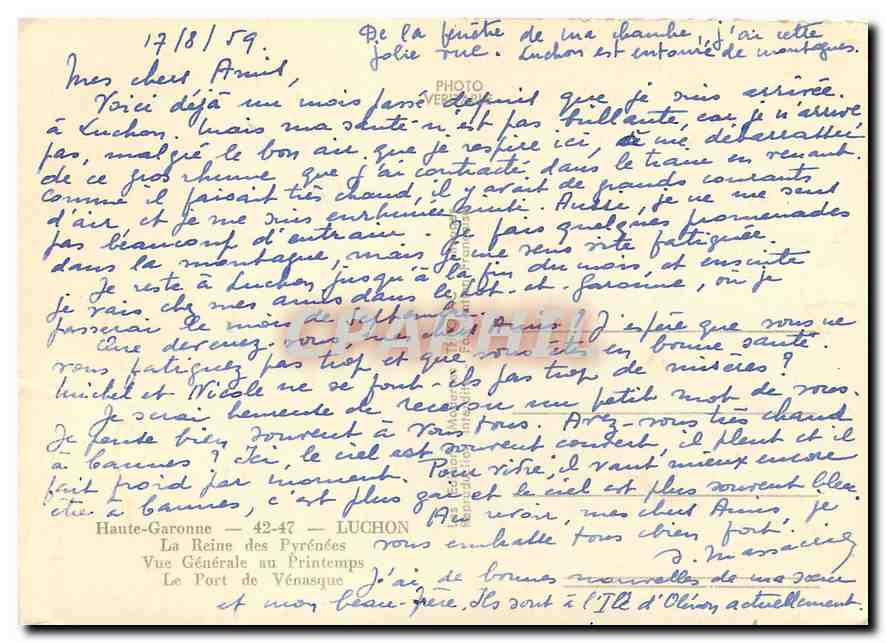 17/8/59.
De la fenêtre de ma chambre, j'ai cette
jolie vue. Luchon est entouré de montagnes.
Mes chers Amis,
PHOTO
VERITABLE
Voici déjà un mois passé depuis que je suis arrivée
à Luchon. Mais ma santé n'est pas brillante, car je n'arrive
pas, malgré le bon air que je respire ici, à me débarrasser
de ce gros rhume que j'ai contracté dans le train en venant.
Comme il faisait très chaud, il y avait de grands courants
d'air, et je me suis enrhumée ainsi. Aussi, je ne me sens
pas beaucoup d'entrain. Je fais quelques promenades
dans la montagne, mais je me sens vite fatiguée.
Je reste à Luchon jusqu'à la fin du mois, et ensuite
je vais chez mes amis dans le Lot-et-Garonne, où je
passerai le mois de Septembre.
Que devenez-vous, mes chers Amis? J'espère que vous ne
vous fatiguez pas trop et que vous êtes en bonne santé.
Michel et Nicole ne se font-ils pas trop de misères?
Je serai heureuse de recevoir un petit mot de vous.
Je pense bien souvent à vous tous. Avez-vous très chaud
à Cannes? Ici, le ciel est souvent couvert, il pleut et il
fait froid par moment. Pour vivre, il vaut mieux encore
être à Cannes, c'est plus gai et le ciel est plus souvent bleu.
Au revoir, mes chers Amis, je
vous embrasse tous bien fort.
Haute-Garonne — 42-47 — LUCHON
La Reine des Pyrénées
Vue Générale au Printemps
Le Port de Vénasque
J'ai de bonnes nouvelles de ma sœur
et mon beau-frère. Ils sont à l'Ile d'Oléron actuellement.
CPAPHIL